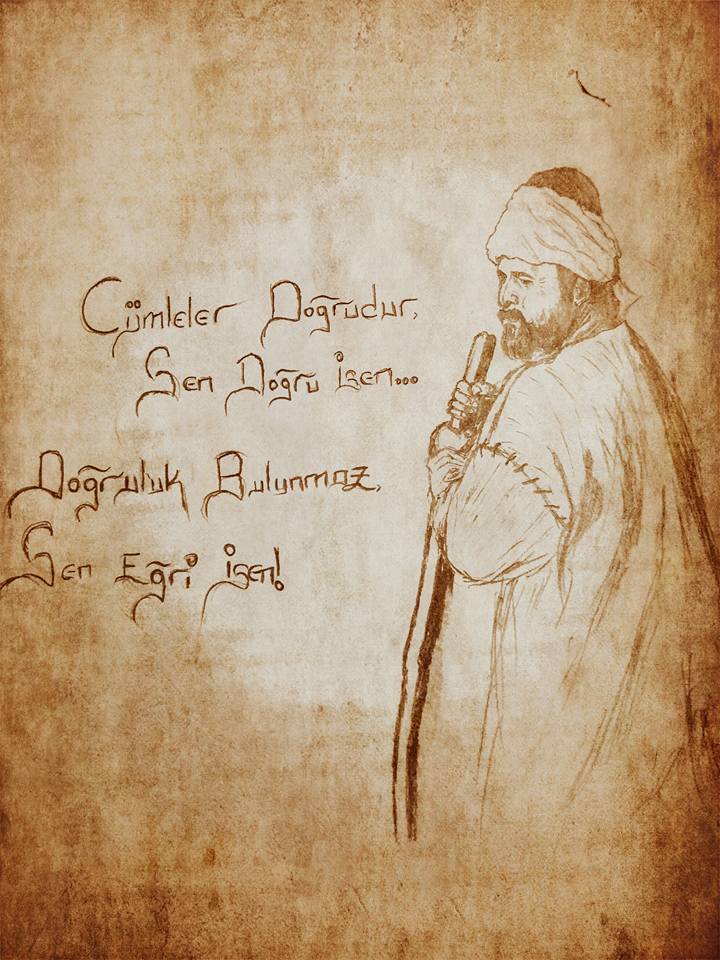 Cümleler Doğrudur,
Sen Doğru isen...
Doğruluk Bulunmaz,
Sen Eğri isen!